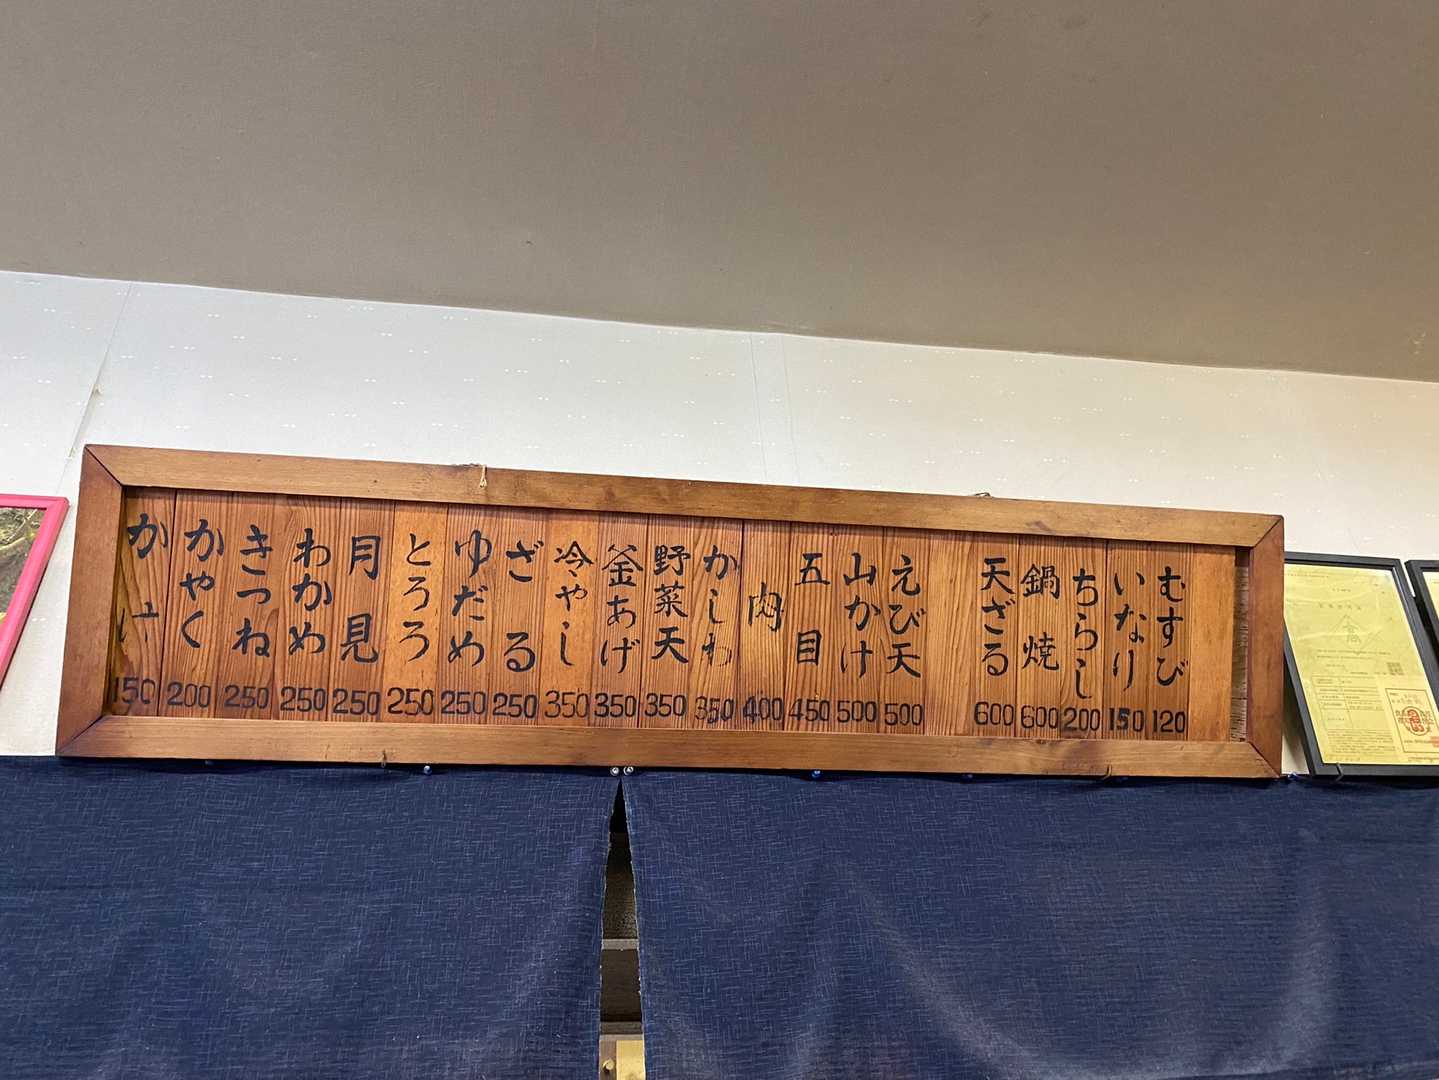 かけ 150
かやく 200
きつね 250
わかめ 250
月見 250
とろろ 250
ゆだめ 250
ざる 250
冷やし 350
釜あげ 350
野菜天 350
かしわ 350
肉 400
五目 450
山かけ 500
えび天 500
天ざる 600
鍋焼 600
ちらし 200
いなり 150
むすび 120